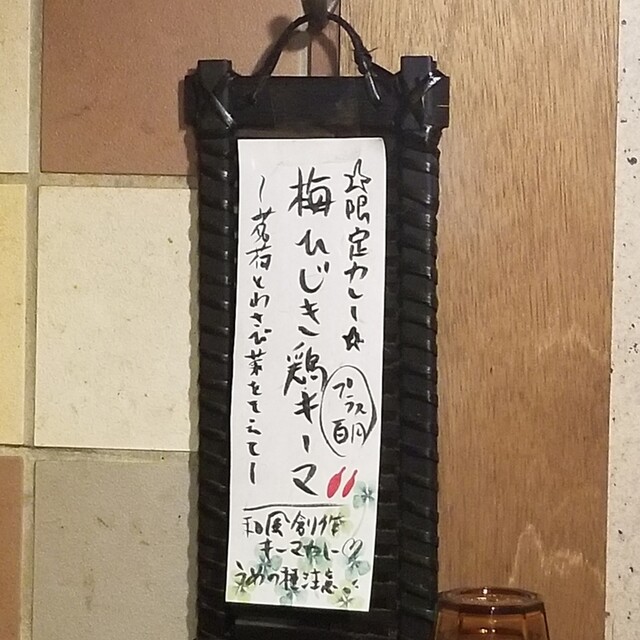 ☆限定カレー☆
梅ひじき鶏キーマ
プラス
百円
～茗荷とわさび菜をそえて～
和風創作
キーマカレー
うめの種注意